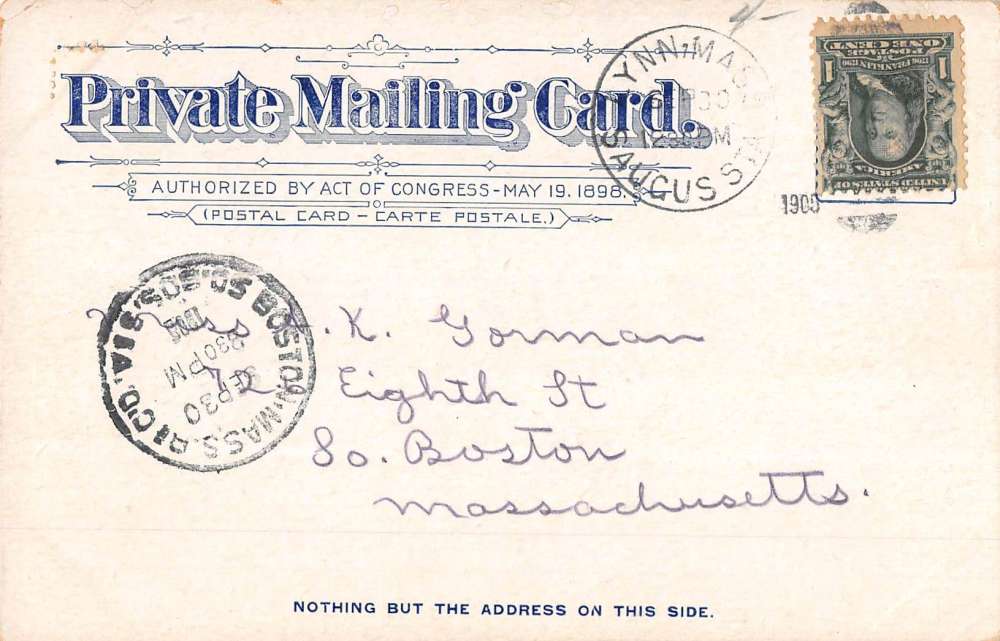 Private Mailing Card.
AUTHORIZED BY ACT OF CONGRESS-MAY 19. 1898.
(POSTAL CARD – CARTE POSTALE.)
LYNN, MASS.
SEP 30
12 PM
SAUGUS STA.
1905
POSTAGE
ONE CENT
1706 FRANKLIN 1790
1 1
UNITED STATES OF AMERICA
BOSTON, MASS.
SO. BOS.
REC'D
SEP 30
230 PM
1905
Miss K. Gorman
72 Eighth St
So. Boston
Massachusetts.
NOTHING BUT THE ADDRESS ON THIS SIDE.